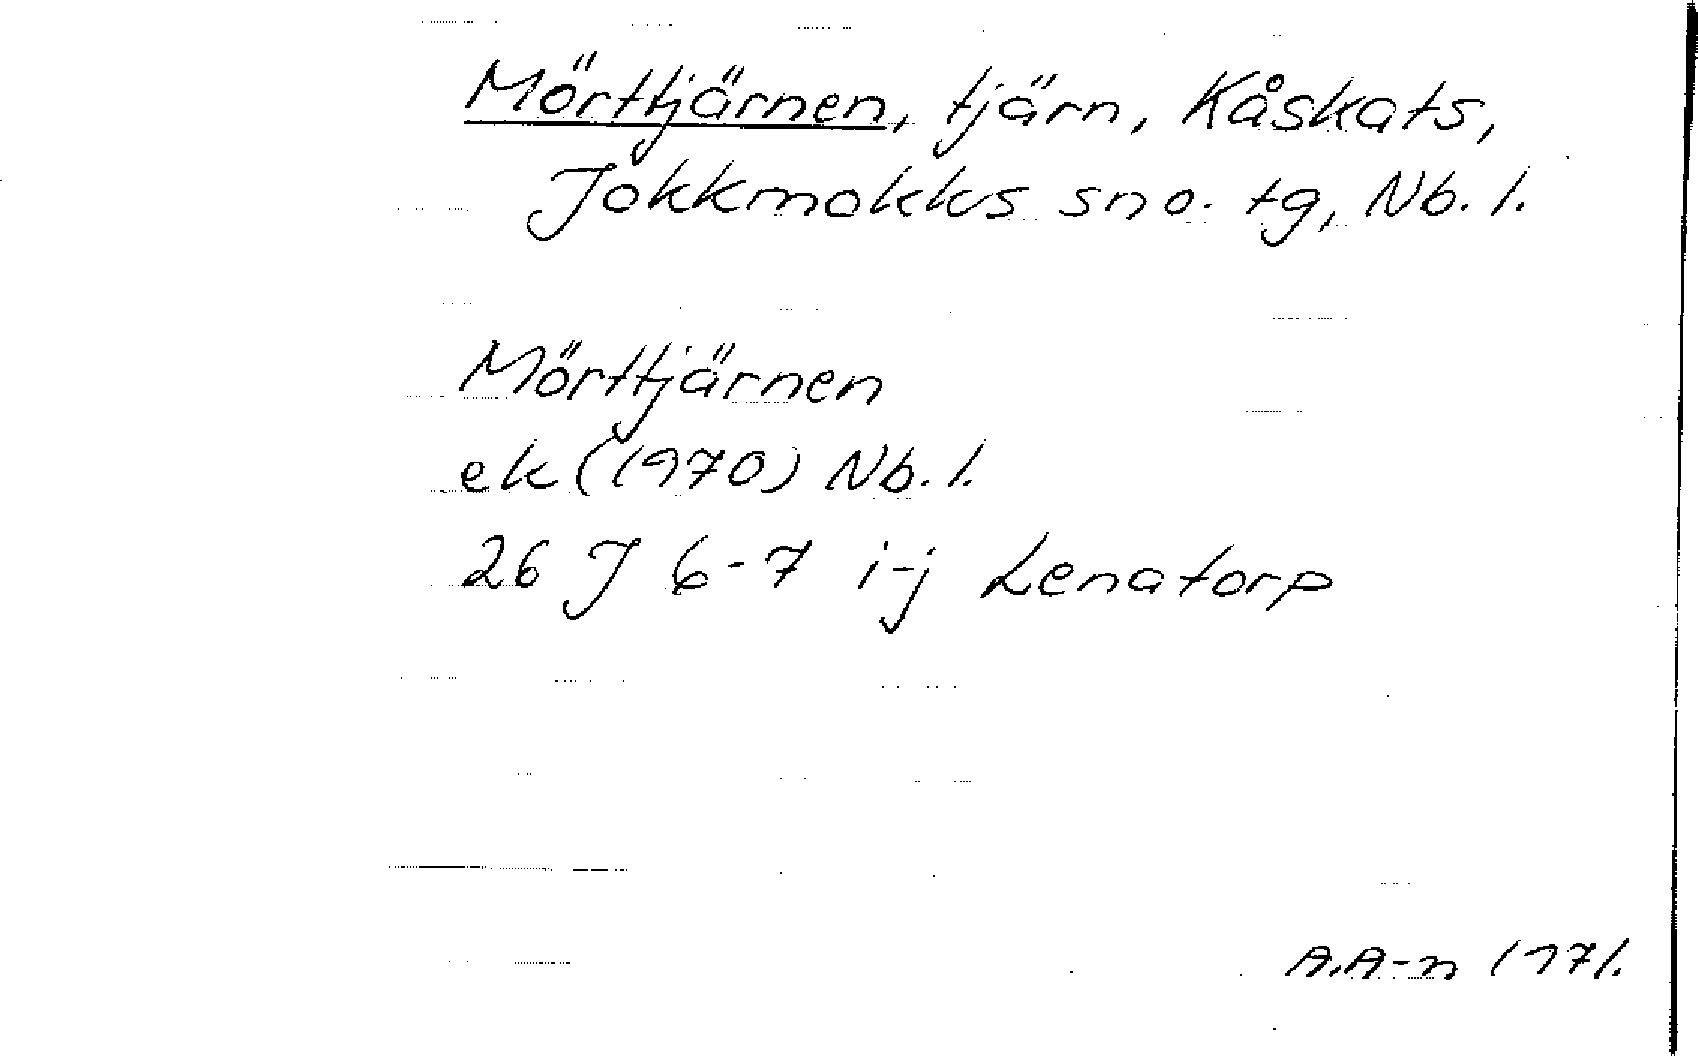 Mörttjärnen, tjärn, Kåskats,
Jokkmokks sno. tg, Nb. l.
Mörttjärnen
ek (1970) Nb. l.
26 J 6-7 i-j Lenatorp
A.A-n 1971.